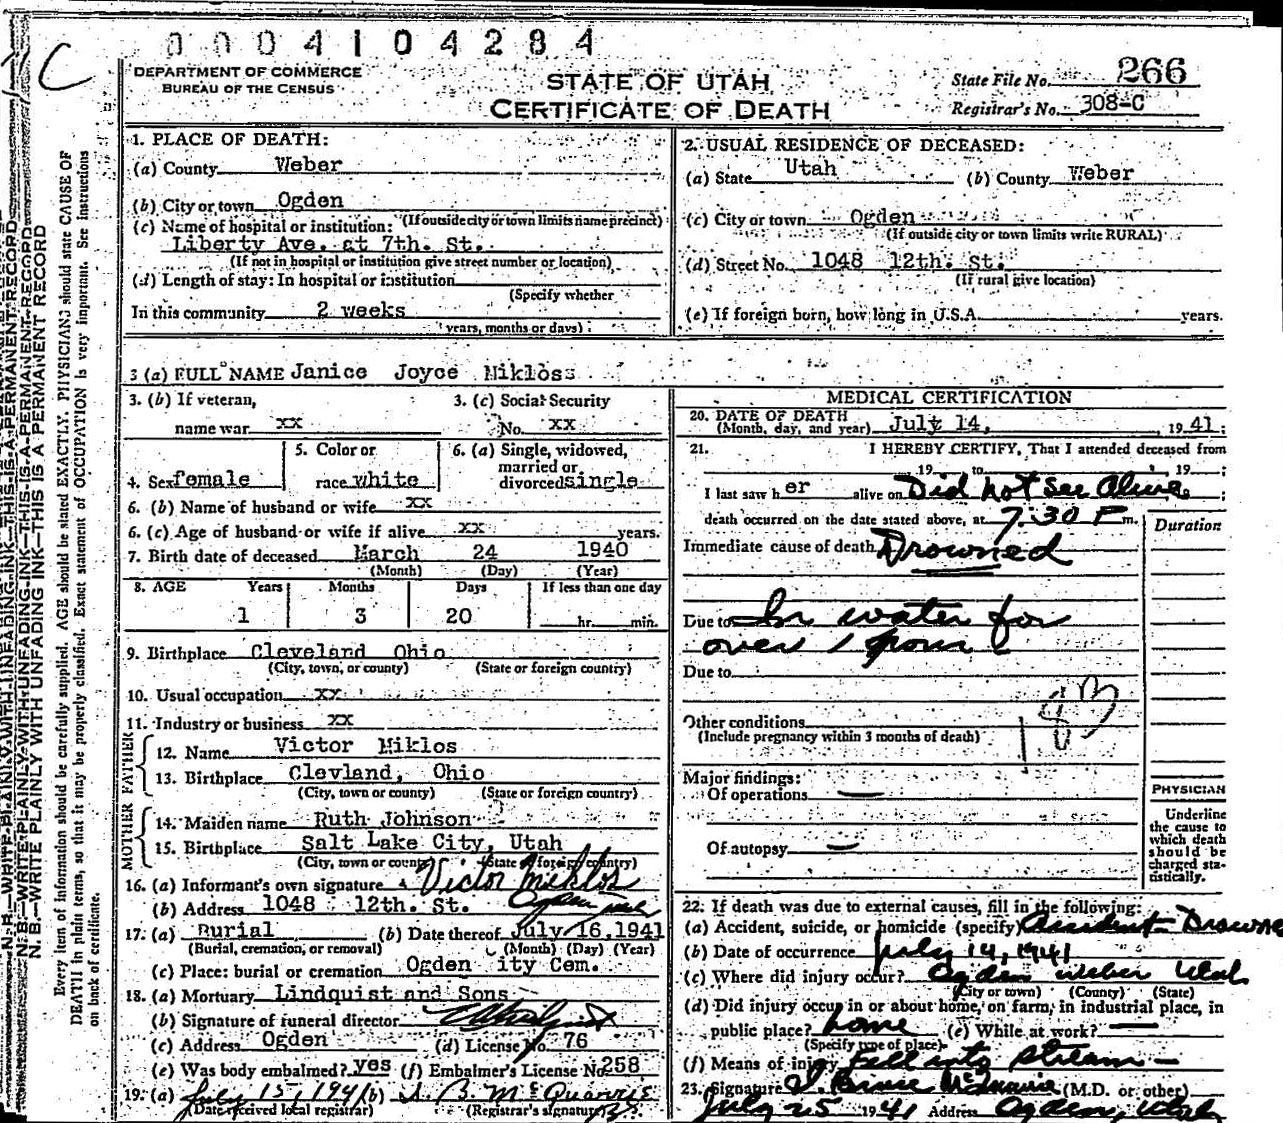 0004104284
C
DEPARTMENT OF COMMERCE
BUREAU OF THE CENSUS
STATE OF UTAH
CERTIFICATE OF DEATH
State File No. 266
Registrar's No. 308-C
N. B.—WRITE PLAINLY WITH UNFADING INK—THIS IS A PERMANENT RECORD
Every item of information should be carefully supplied. AGE should be stated EXACTLY. PHYSICIANS should state CAUSE OF
DEATH in plain terms, so that it may be properly classified. Exact statement of OCCUPATION is very important. See instructions
on back of certificate.
1. PLACE OF DEATH:
(a) County Weber
(b) City or town Ogden
(If outside city or town limits name precinct)
(c) Name of hospital or institution:
Liberty Ave. at 7th. St.
(If not in hospital or institution give street number or location)
(d) Length of stay: In hospital or institution
(Specify whether
In this community 2 weeks
years, months or days)
2. USUAL RESIDENCE OF DECEASED:
(a) State Utah (b) County Weber
(c) City or town Ogden
(If outside city or town limits write RURAL)
(d) Street No. 1048 12th. St.
(If rural give location)
(e) If foreign born, how long in U.S.A. years.
3 (a) FULL NAME Janice Joyce Mikloss
3. (b) If veteran, 3. (c) Social Security
name war xx No. xx
4. Sex female 5. Color or race white 6. (a) Single, widowed, married or divorced single
6. (b) Name of husband or wife xx
6. (c) Age of husband or wife if alive xx years.
7. Birth date of deceased March 24 1940
(Month) (Day) (Year)
8. AGE Years Months Days If less than one day
1 3 20 hr. min.
9. Birthplace Cleveland Ohio
(City, town, or county) (State or foreign country)
10. Usual occupation xx
11. Industry or business xx
FATHER
12. Name Victor Miklos
13. Birthplace Clevland, Ohio
(City, town or county) (State or foreign country)
MOTHER
14. Maiden name Ruth Johnson
15. Birthplace Salt Lake City, Utah
(City, town or county) (State or foreign country)
16. (a) Informant's own signature Victor Miklos
(b) Address 1048 12th. St. Ogden Utah
17. (a) Burial (b) Date thereof July 16, 1941
(Burial, cremation, or removal) (Month) (Day) (Year)
(c) Place: burial or cremation Ogden ity Cem.
18. (a) Mortuary Lindquist and Sons
(b) Signature of funeral director
(c) Address Ogden (d) License No. 76
(e) Was body embalmed? yes (f) Embalmer's License No. 258
19. (a) July 15, 1941 (b) B. McQuarrie
(Date received local registrar) (Registrar's signature)
MEDICAL CERTIFICATION
20. DATE OF DEATH
(Month, day, and year) July 14, 1941;
21. I HEREBY CERTIFY, That I attended deceased from
19 to , 19 ;
I last saw her alive on Did not see alive ;
death occurred on the date stated above, at 7:30 P m.
Duration
Immediate cause of death Drowned
Due to In water for
over 1 hour
Due to
Other conditions
(Include pregnancy within 3 months of death)
183
Major findings:
Of operations —
Of autopsy —
PHYSICIAN
Underline
the cause to
which death
should be
charged sta-
tistically.
22. If death was due to external causes, fill in the following:
(a) Accident, suicide, or homicide (specify) Accident- Drowned
(b) Date of occurrence July 14, 1941
(c) Where did injury occur? Ogden Weber Utah
(City or town) (County) (State)
(d) Did injury occur in or about home, on farm, in industrial place, in
public place? home (e) While at work? —
(Specify type of place)
(f) Means of injury Fell into stream —
23. Signature (M.D. or other)
July 25 1941 Address Ogden, Utah